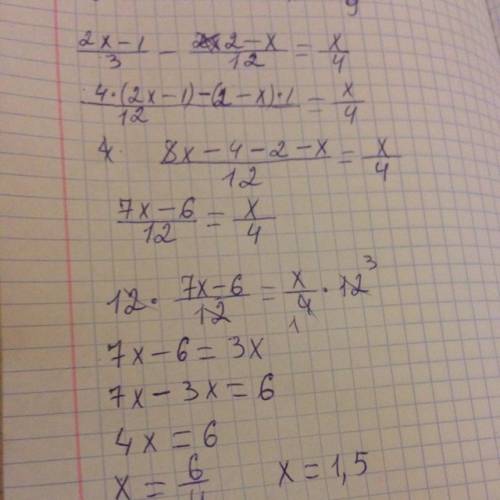 (2x-1)/3 - (2-x)/12 = x/4
(4·(2x-1)-(2-x)·1)/12 = x/4
(8x-4-2-x)/12 = x/4
(7x-6)/12 = x/4
12· (7x-6)/12 = x/4 ·12 3
1
7x-6=3x
7x-3x=6
4x=6
x = 6/4 x=1,5